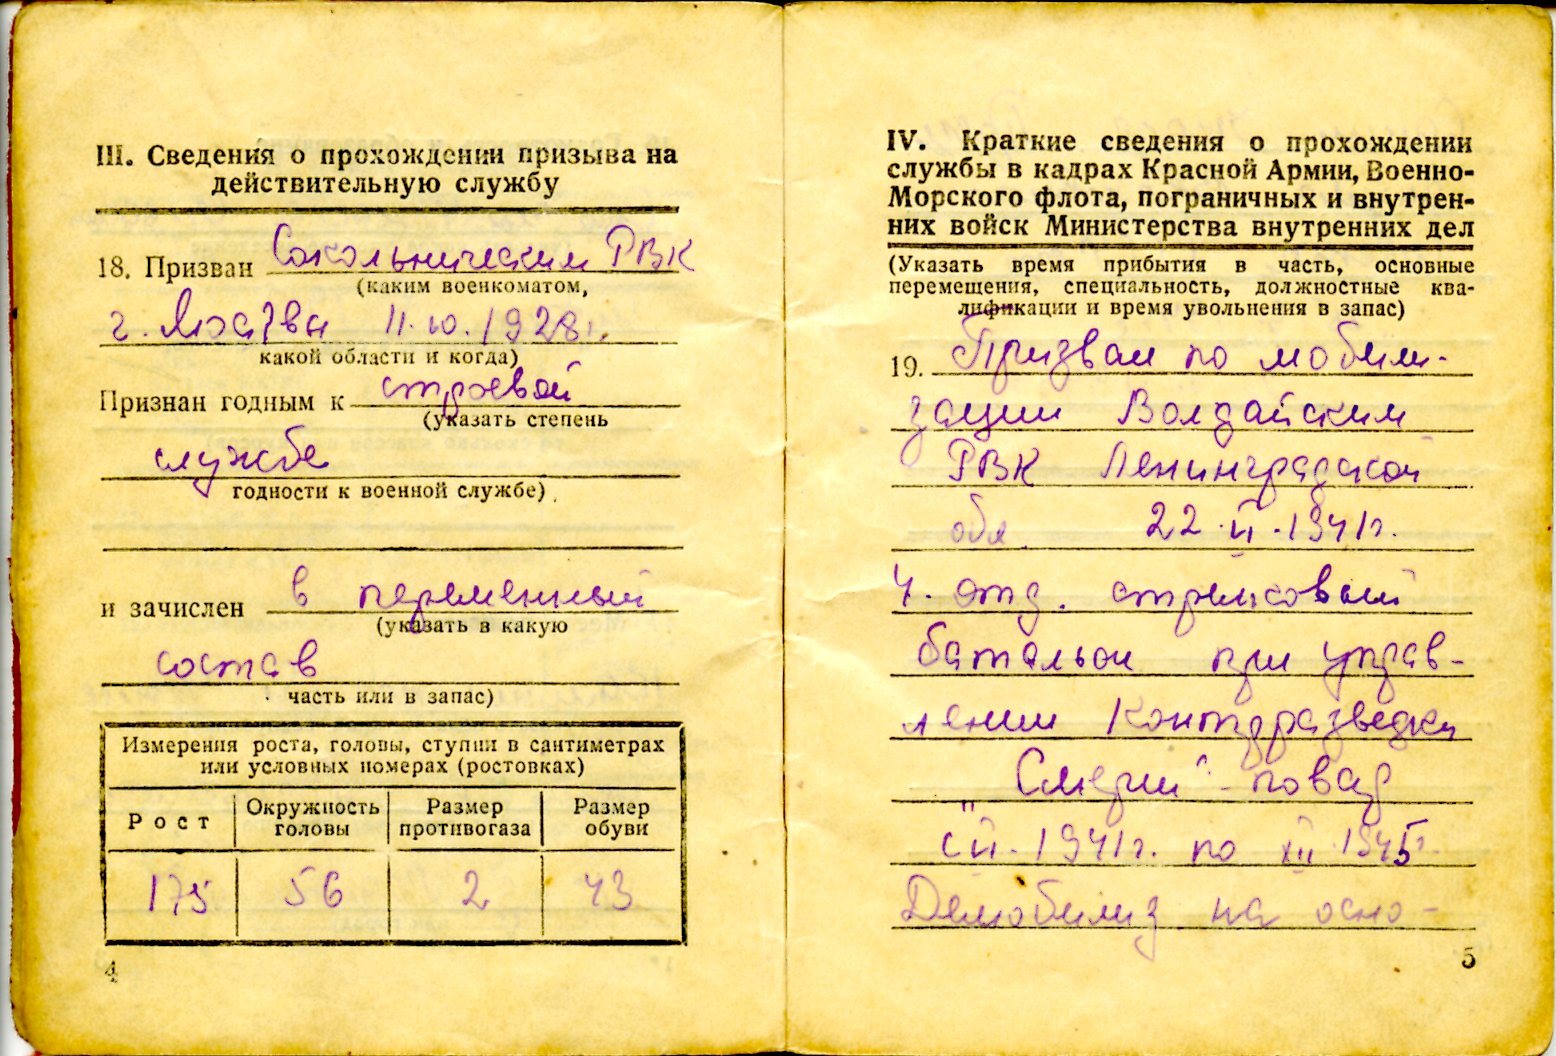 III. Сведения о прохождении призыва на
действительную службу
18. Призван Сокольническим РВК
(каким военкоматом,
г. Москвы 11.10.1928г.
какой области и когда)
Признан годным к строевой
(указать степень
службе
годности к военной службе)
и зачислен в переменный
(указать в какую
состав
часть или в запас)
Измерения роста, головы, ступни в сантиметрах
или условных номерах (ростовках)
Рост Окружность головы Размер противогаза Размер обуви
175 56 2 43
4
IV. Краткие сведения о прохождении
службы в кадрах Красной Армии, Военно-
Морского флота, пограничных и внутрен-
них войск Министерства внутренних дел
(Указать время прибытия в часть, основные
перемещения, специальность, должностные ква-
лификации и время увольнения в запас)
19. Призван по мобили-
зации Волдайским
РВК Ленинградской
обл. 22. 1941г.
4. отд. стрелковый
батальон при управ-
лении Контрразведки
„Смерш" - повар
1941г. по XII 1945г.
Демобилиз на осно-
5